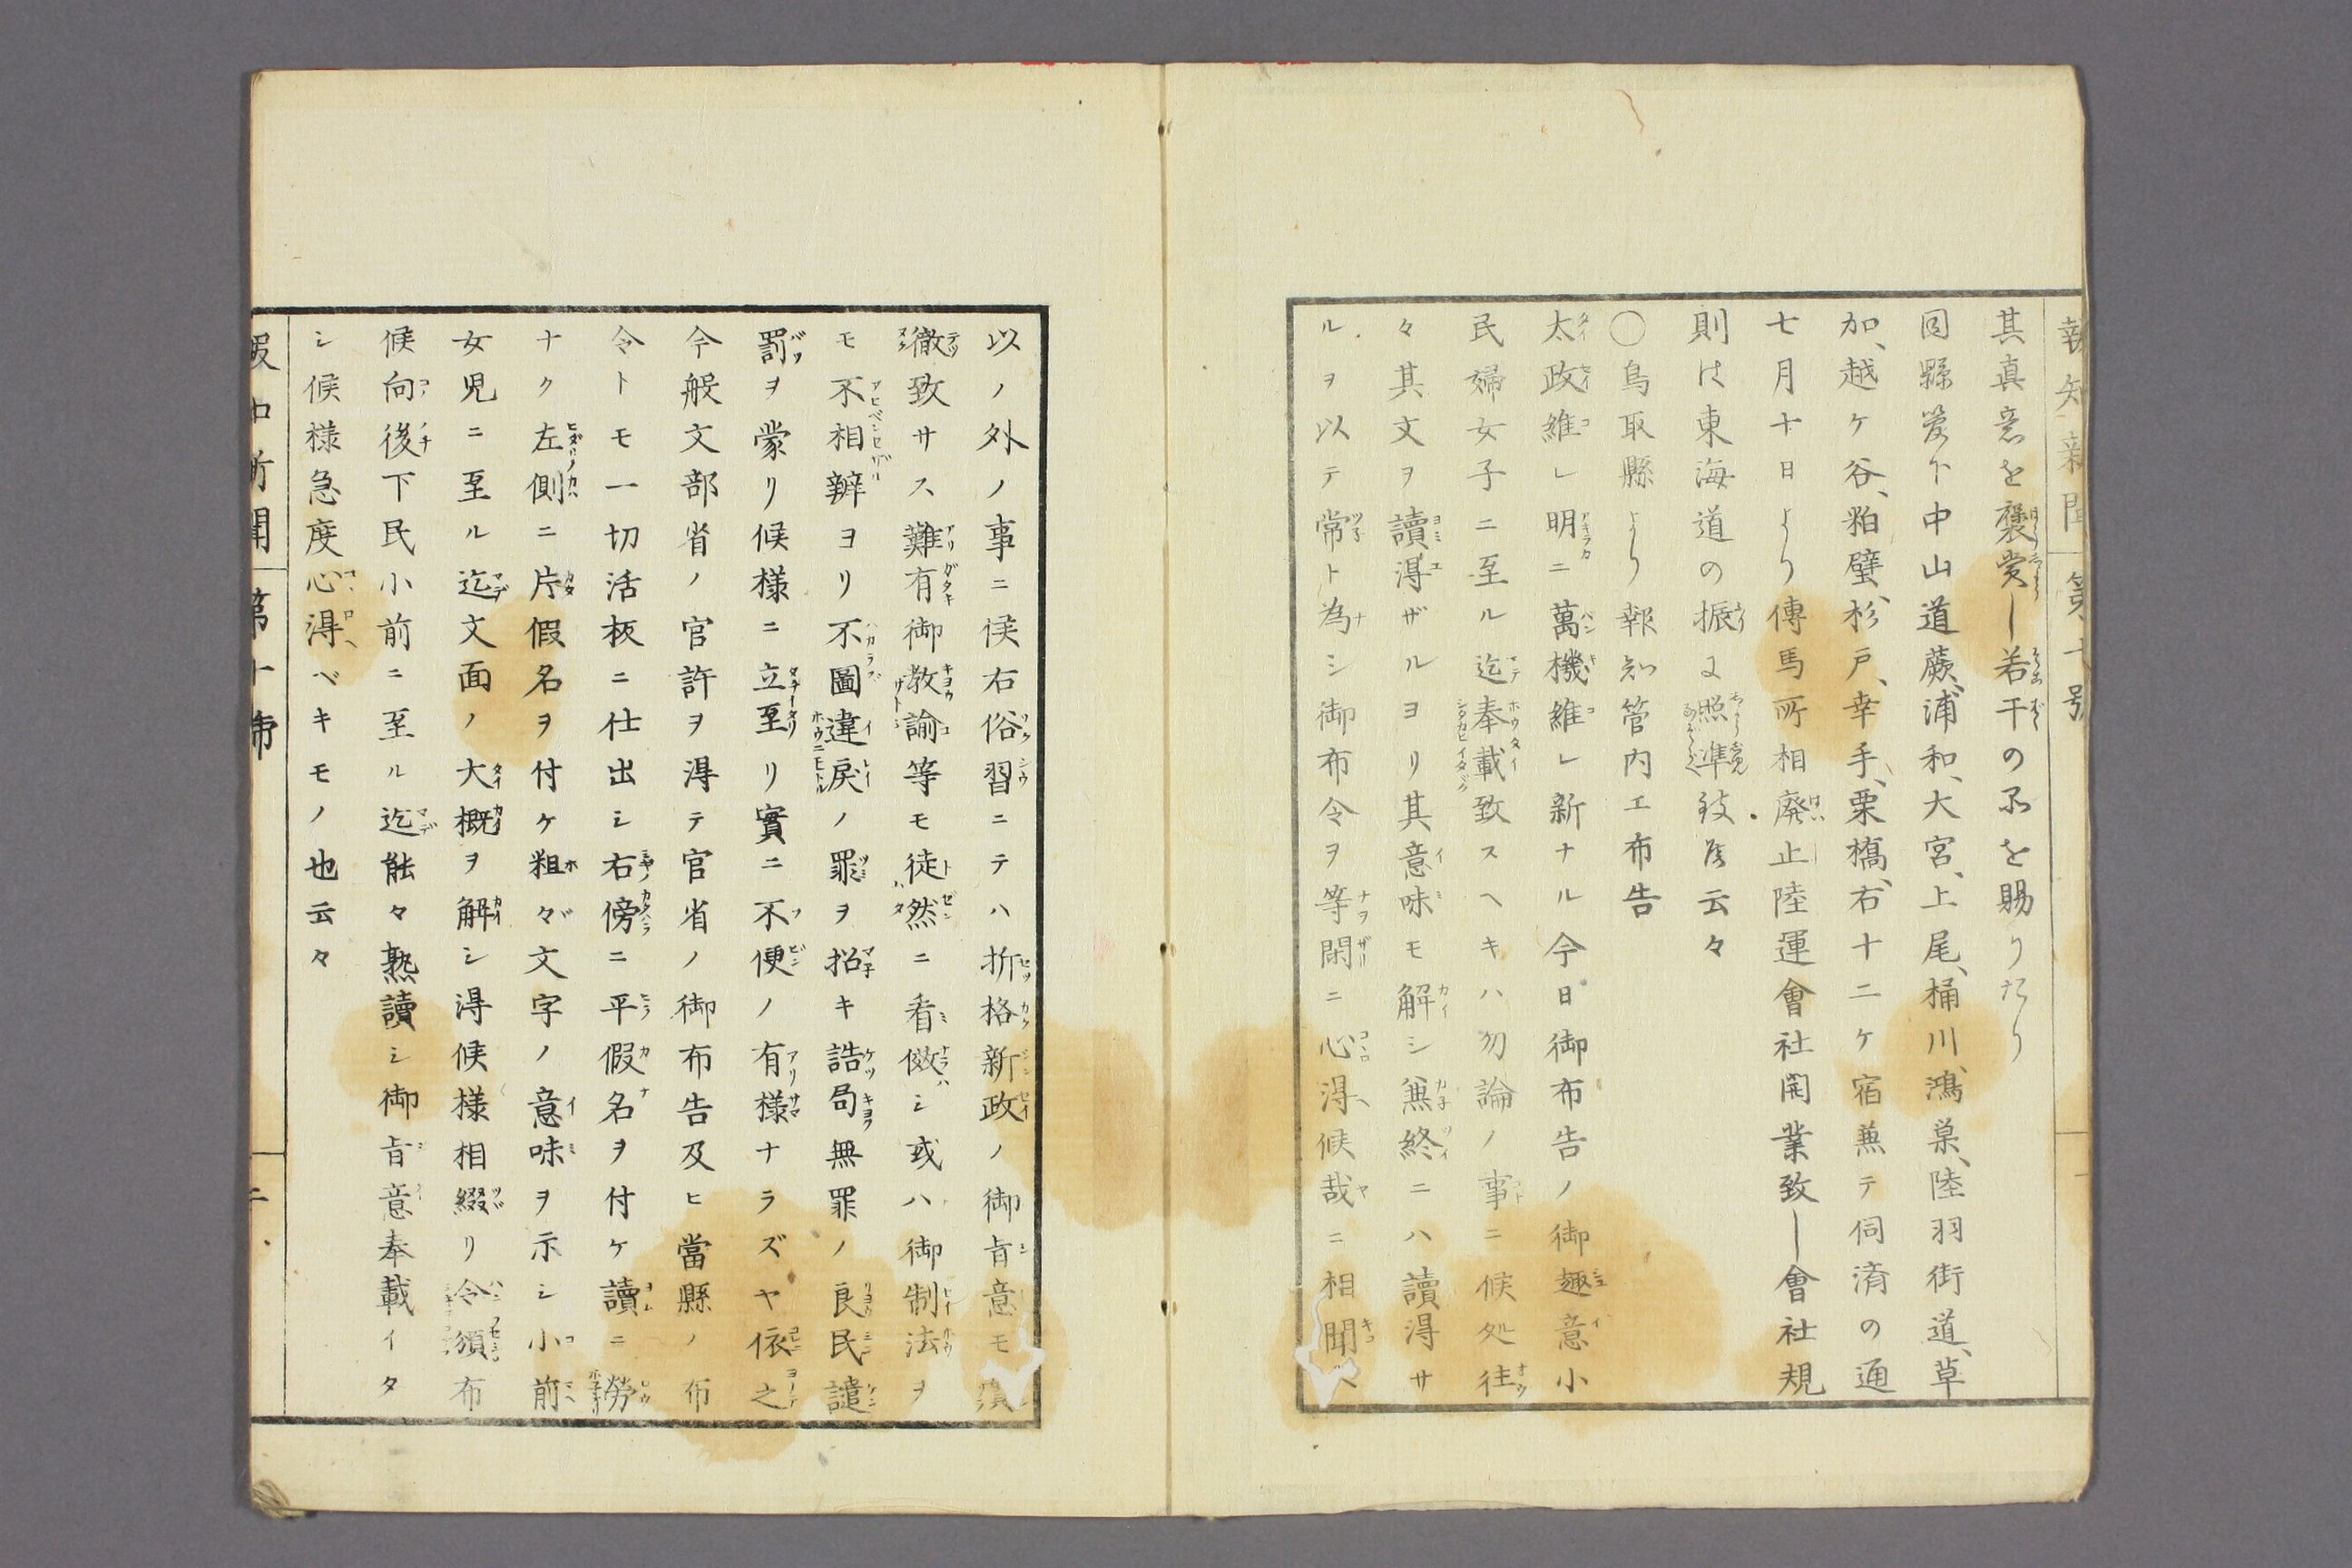 報知新聞 第十號
其真意を褒賞し若干の品を賜りたり
同縣管下中山道蕨、浦和、大宮、上尾、桶川、鴻巣、陸羽街道、草
加、越ケ谷、粕壁、杉戸、幸手、栗橋、右十二ケ宿兼テ伺済の通
七月十日より傳馬所相廃止陸運會社開業致し會社規
則は東海道の振に照準致候云々
〇鳥取縣より報知管内エ布告
太政維レ明ニ萬機維レ新ナル今日御布告ノ御趣意小
民婦女子ニ至ル迄奉載致スヘキハ勿論ノ事ニ候処往
々其文ヲ讀得ザルヨリ其意味モ解シ兼終ニハ讀得サ
ルヲ以テ常ト為シ御布令ヲ等閑ニ心得候哉ニ相聞
以ノ外ノ事ニ候右俗習ニテハ折格新政ノ御旨意モ
徹致サス難有御教諭等モ徒然ニ看倣シ或ハ御制法ヲ
モ不相辨ヨリ不圖違戻ノ罪ヲ招キ誥局無罪ノ良民譴
罰ヲ蒙リ候様ニ立至リ實ニ不便ノ有様ナラズヤ依之
今般文部省ノ官許ヲ得テ官省ノ御布告及ヒ當縣ノ布
令トモ一切活板ニ仕出シ右傍ニ平假名ヲ付ケ讀ニ勞
ナク左側ニ片假名ヲ付ケ粗々文字ノ意味ヲ示シ小前
女児ニ至ル迄文面ノ大概ヲ解シ得候様相綴リ令頒布
候向後下民小前ニ至ル迄能々熟讀シ御旨意奉載イタ
シ候様急度心得ベキモノ也云々
報知新聞 第十號 二